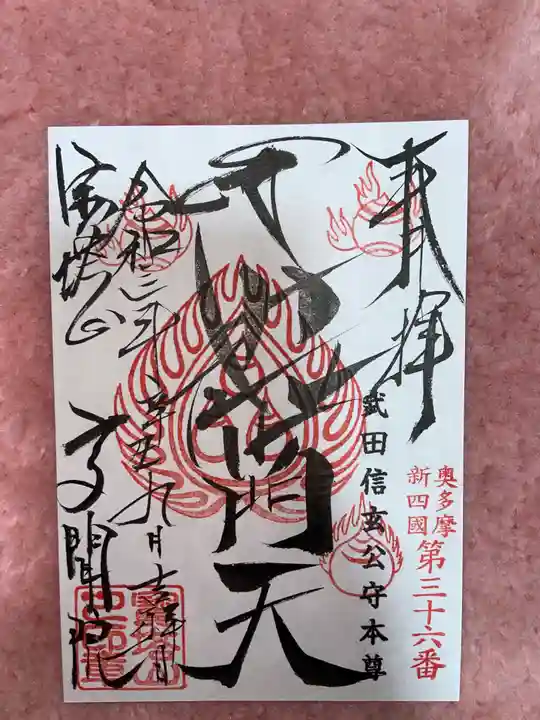 奉拝
奥多摩
新四國
第三十六番
武田信玄公守本尊
毘沙門天
令和三年辛丑九月吉祥日
宝塔山 多聞院